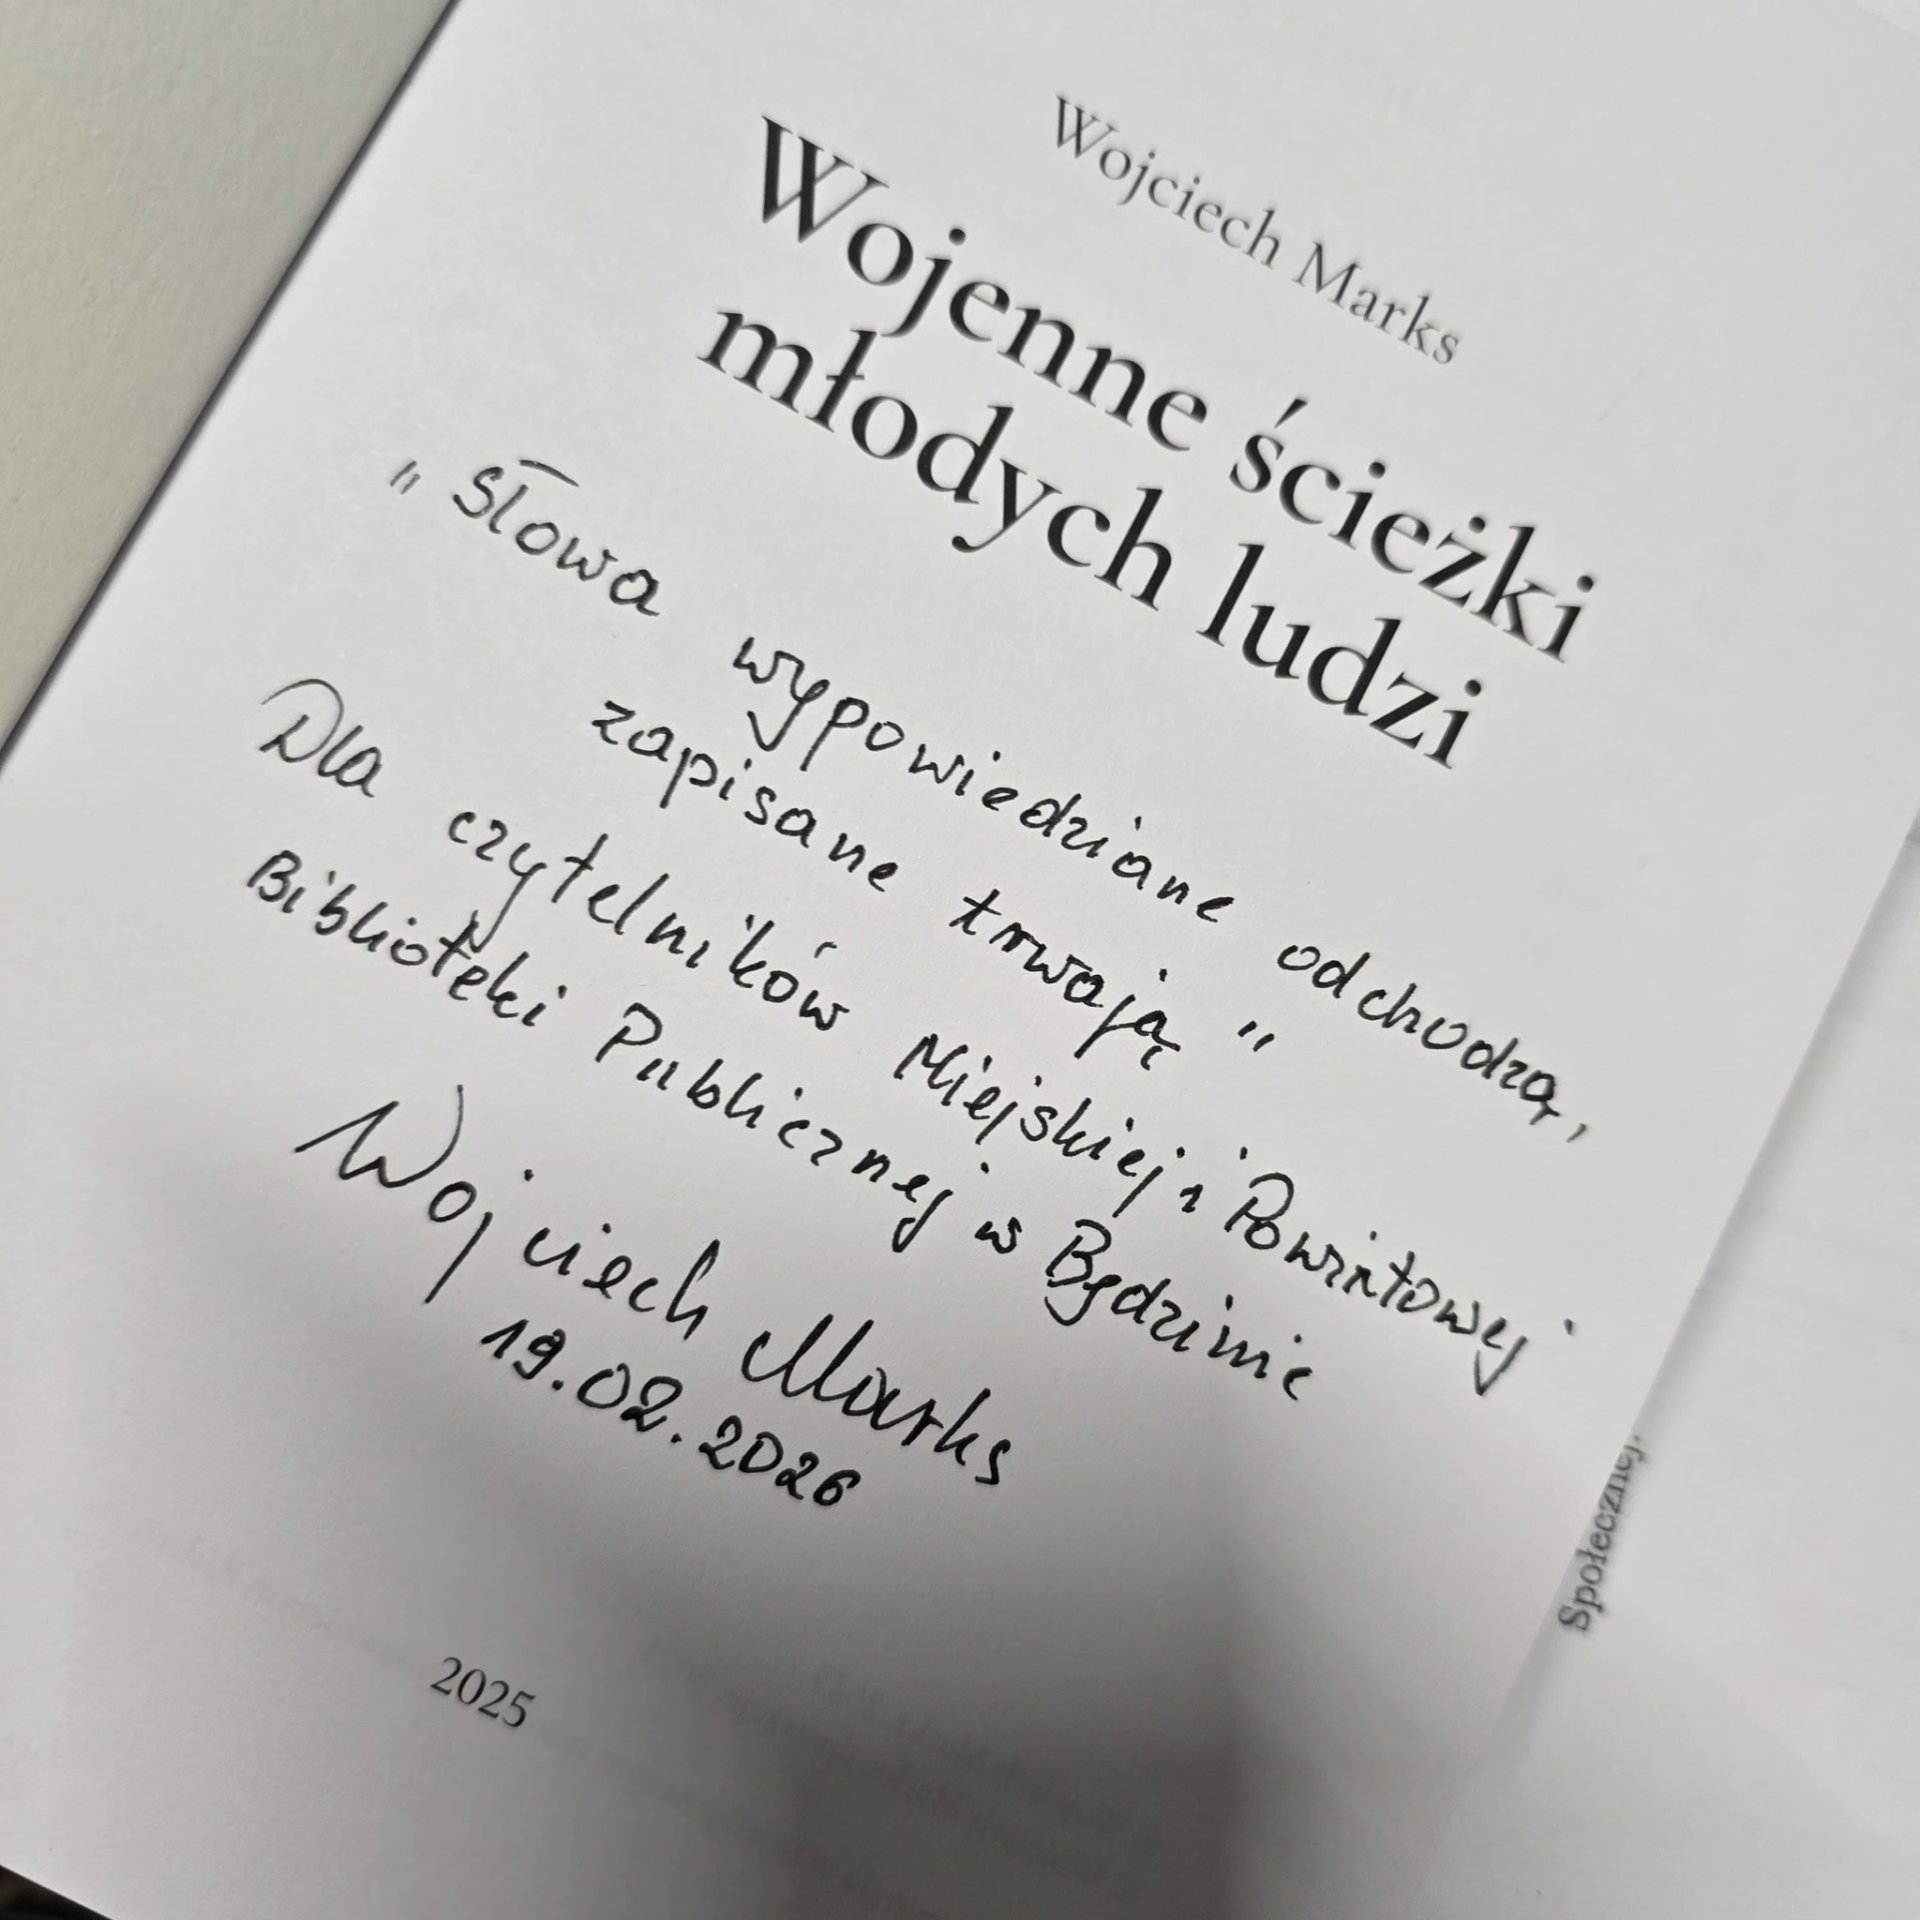 Wojciech Marks
Wojenne ścieżki
młodych ludzi
"Słowa wypowiedziane odchodzą,
zapisane trwają"
Dla czytelników Miejskiej i Powiatowej
Biblioteki Publicznej w Będzinie
Wojciech Marks
19.02.2026
2025
Społecznej.